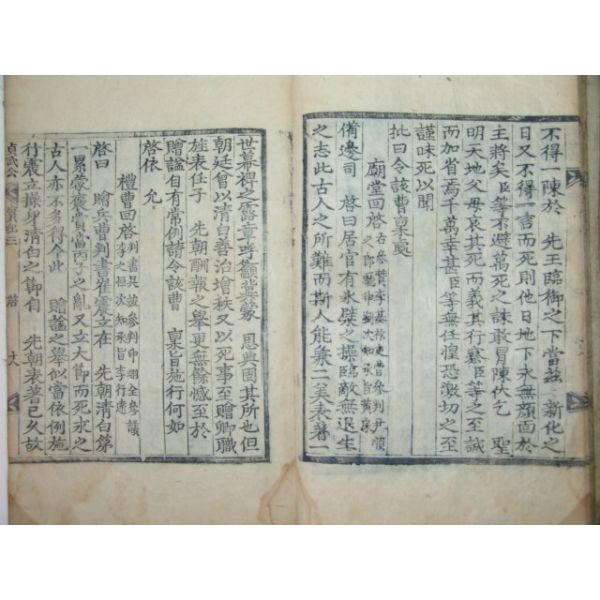 不得一陳於 先王臨御之下當玆 新化之
日又不得一言而死則他日地下永無顔面於
主將矣臣等不避萬死之誅敢冒陳伏乞 聖
明天地父母哀其死而義其行察臣等之至誠
而加省焉千萬幸甚臣等無任惶恐激切之至
謹昧死以聞
批曰令該曹稟處
廟堂回啓
備邊司 啓曰居官有氷蘗之操臨敵無退生
之志此古人之所難而斯人能兼二美表著一
世幕裨之露章呼籲冀蒙 恩典固其所也但
朝廷曾以清白善治增秩又以死事至贈卿職
旌表任子 先朝酬報之擧更無餘憾至於
贈謚自有常例請令該曹 稟旨施行何如
啓依 允
禮曹回啓
啓曰 贈兵曹判書崔震立在 先朝清白第
一累蒙褒賞當丙子之亂又立大節而死求之
古人亦不多得今此 贈謚之擧似當依例施
行震立操身清白之節自 先朝表著已久故
貞武公